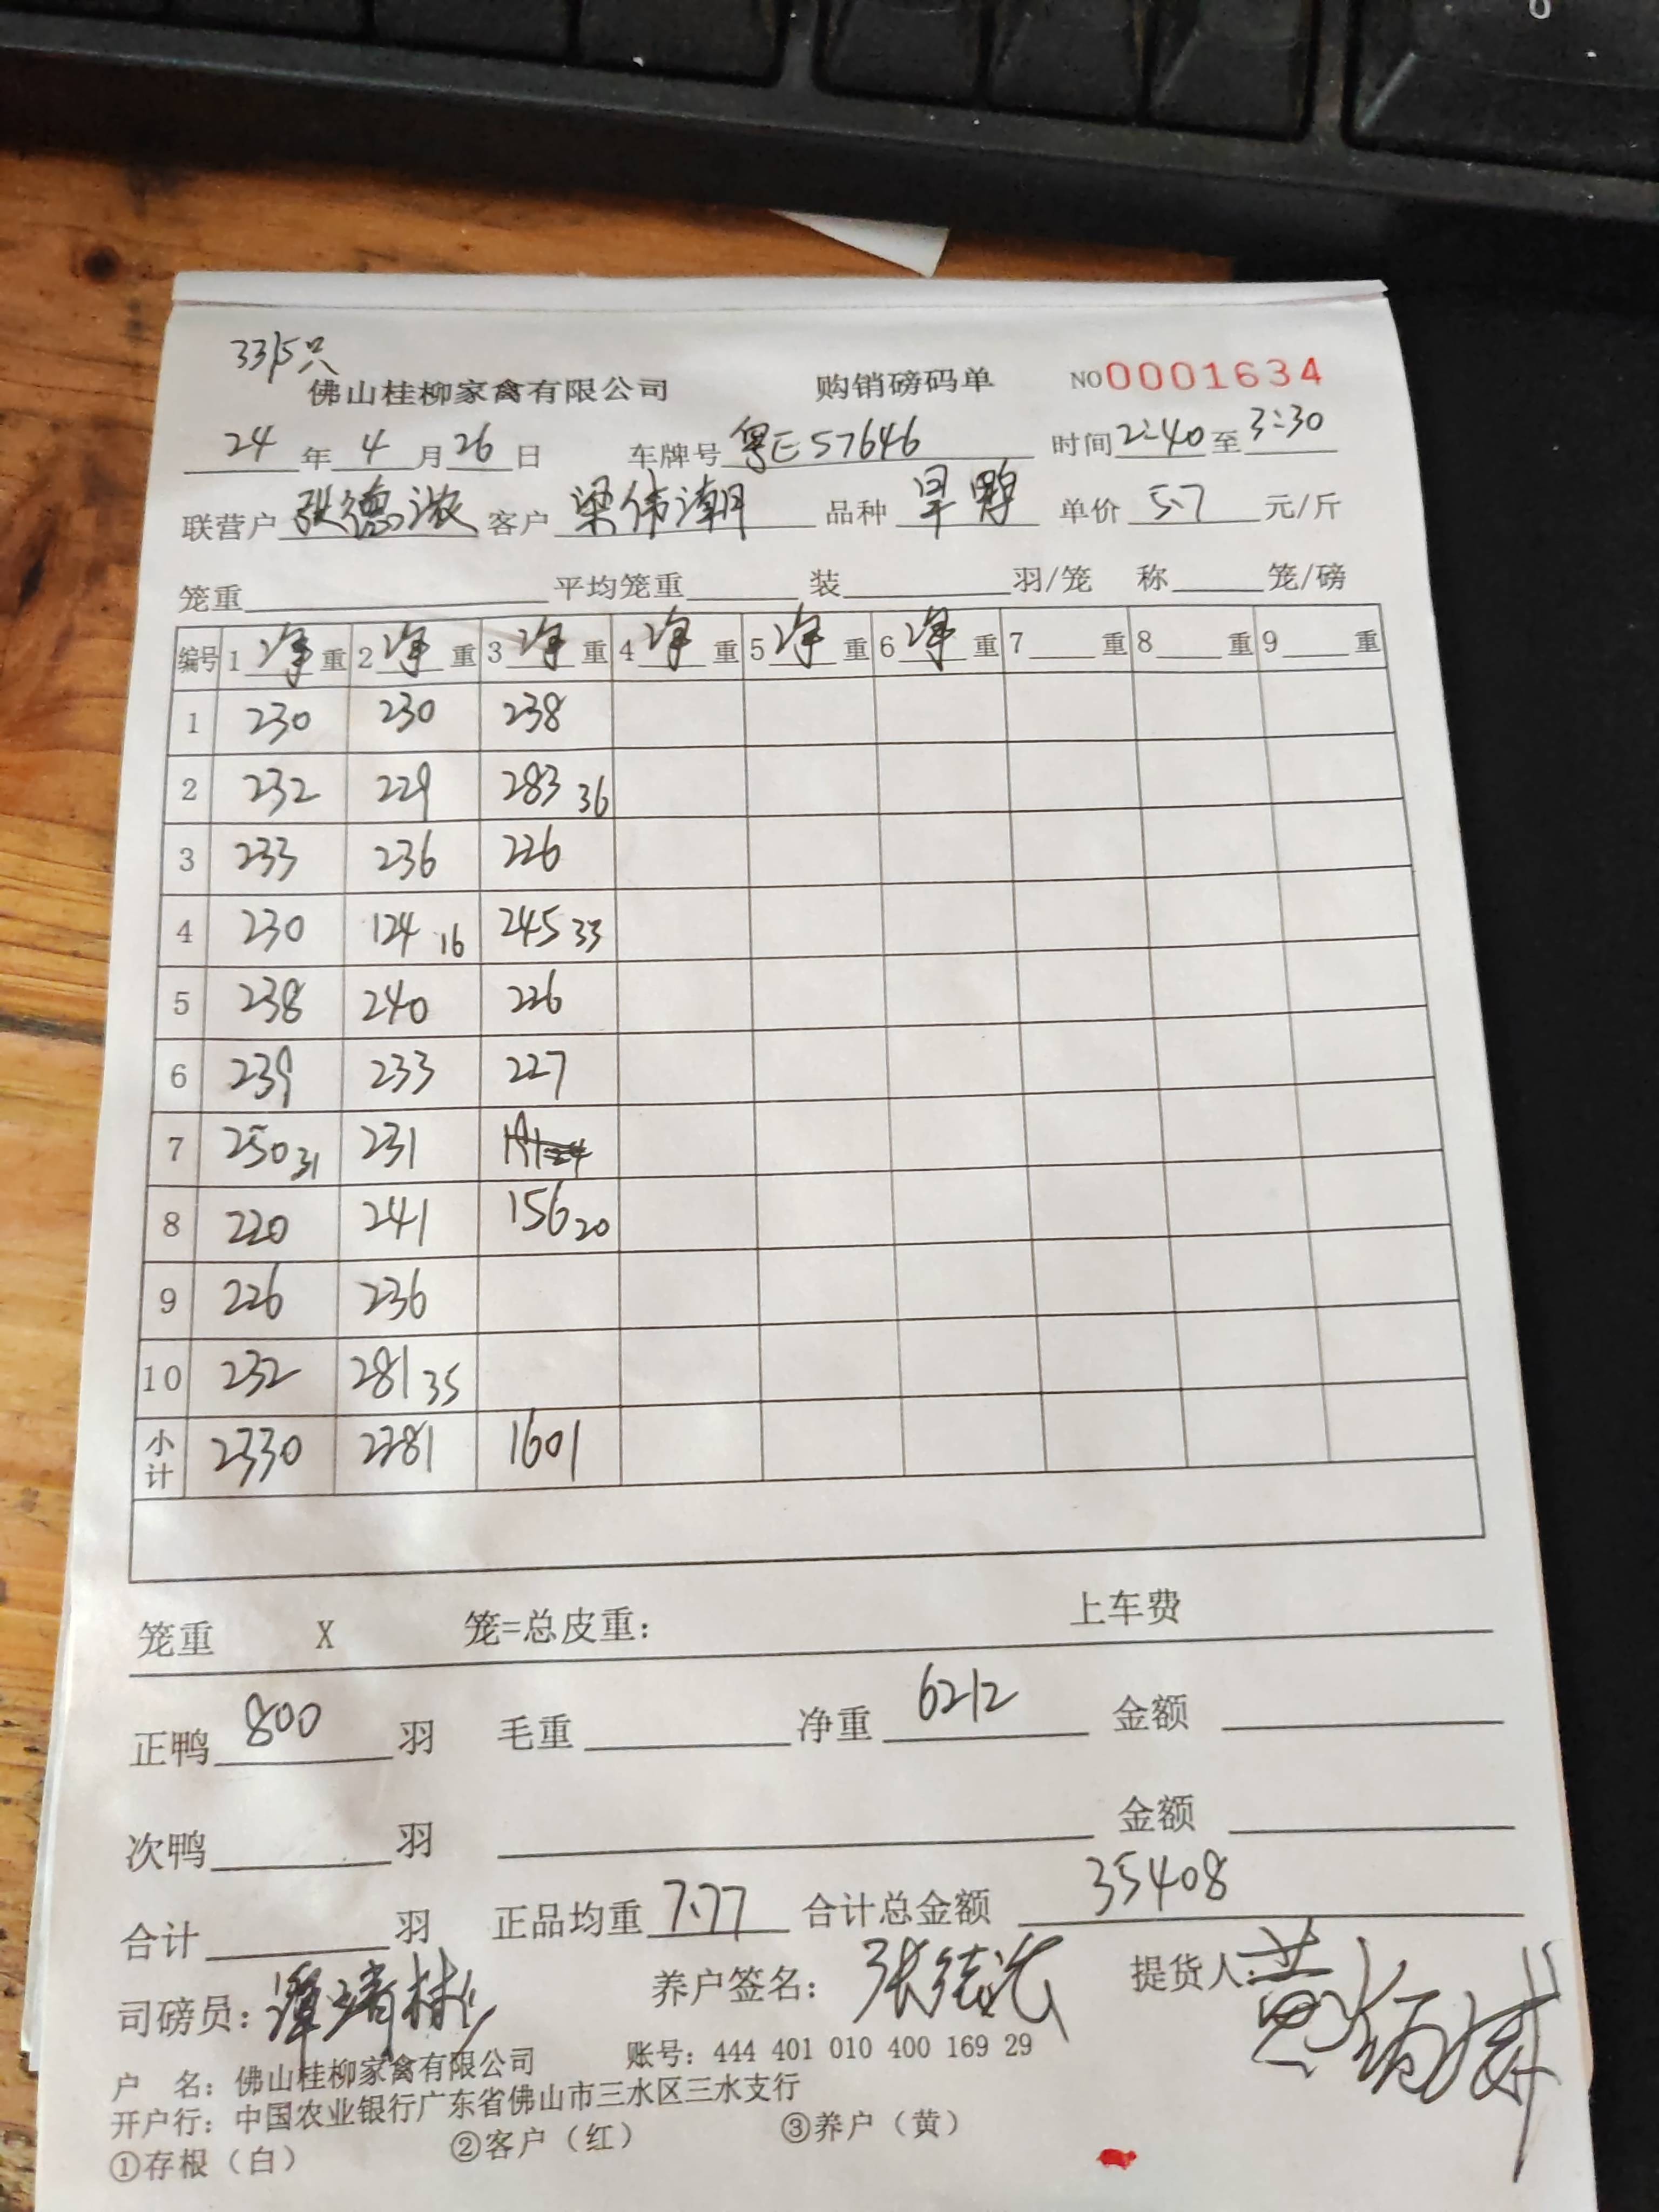 33/5只
佛山桂柳家禽有限公司 购销磅码单 NO0001634
24年4月26日 车牌号粤E57646 时间2:40至3:30
联营户张德 客户梁伟潮 品种旱鸭 单价5.7元/斤
笼重 平均笼重 装 羽/笼 称 笼/磅
编号 1净重 2净重 3净重 4净重 5净重 6净重 7 重 8 重 9 重
1 230 230 238
2 232 229 283 36
3 233 236 226
4 230 124 16 245 33
5 238 240 226
6 239 233 227
7 250 31 231
8 220 241 156 20
9 226 236
10 232 281 35
小计 2330 2281 1601
笼重 X 笼=总皮重： 上车费
正鸭800羽 毛重 净重6212 金额
次鸭 羽 金额
合计 羽 正品均重7.77 合计总金额35408
司磅员：谭靖彬 养户签名：张德 提货人：黄
户 名：佛山桂柳家禽有限公司 账号：444 401 010 400 169 29
开户行：中国农业银行广东省佛山市三水区三水支行
①存根（白） ②客户（红） ③养户（黄）